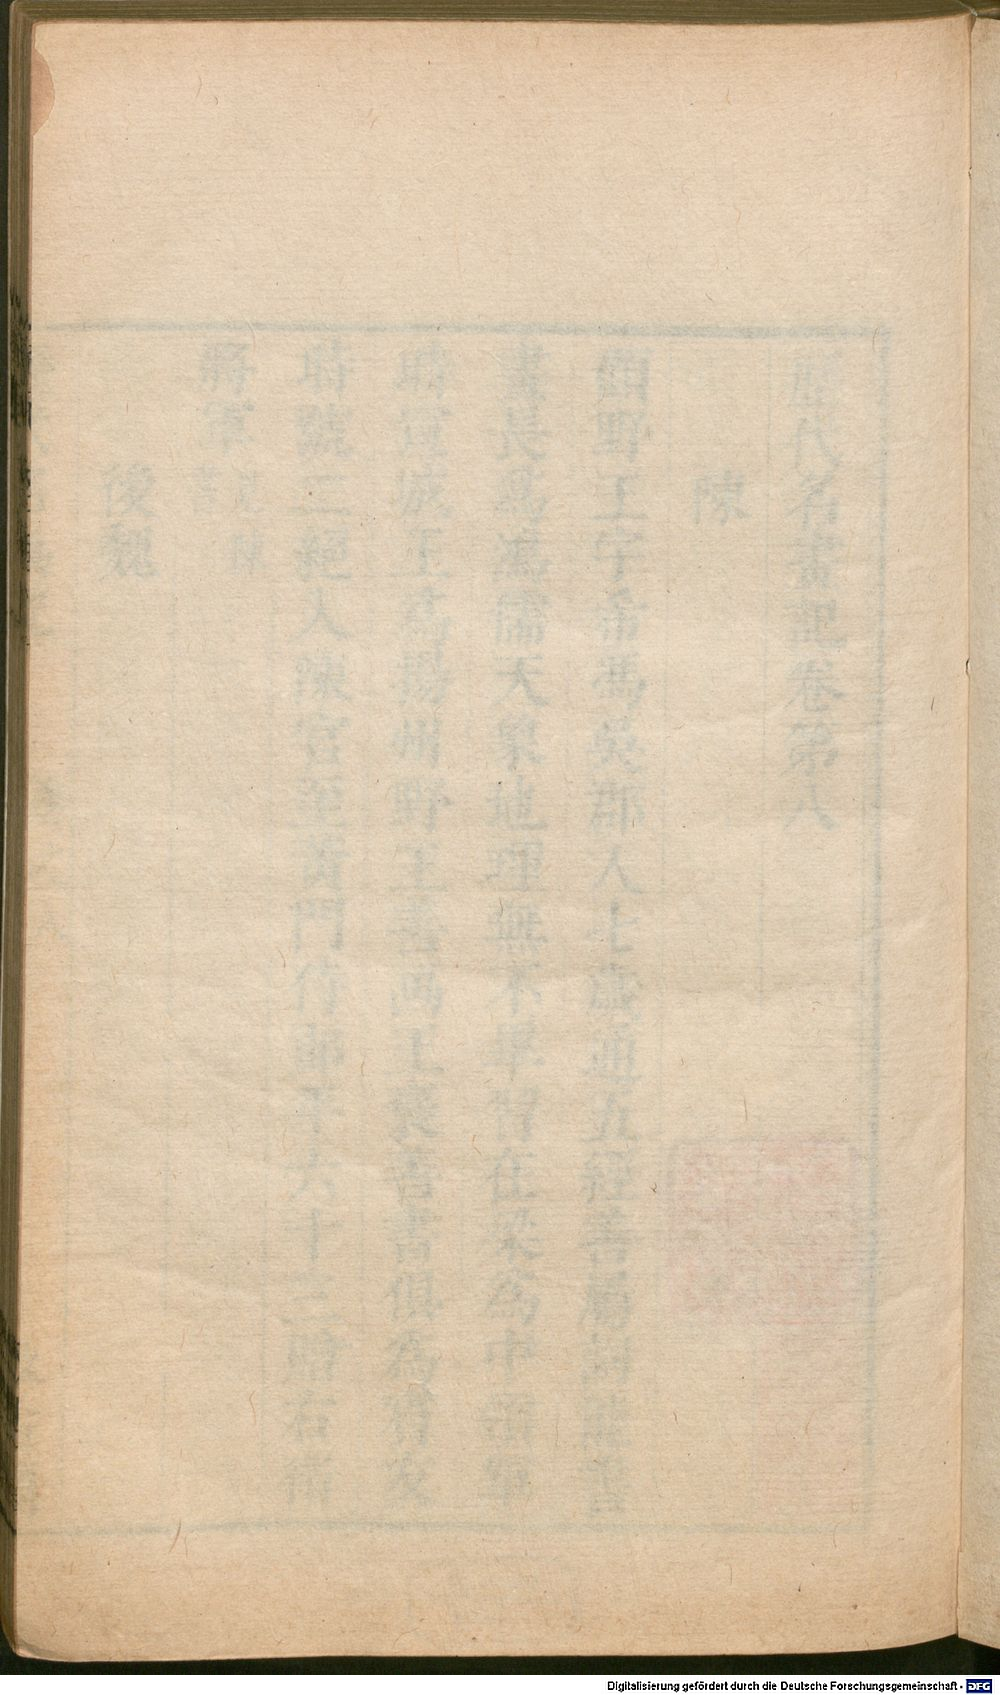 歷代名畫記卷第八
陳
顧野王字希馮吳郡人七歲通五經善屬詞能書
畫長爲鴻儒天象地理無不畢習在梁爲中領軍
時宣城王爲揚州野王善畫王褒善書俱爲賓友
時號二絕入陳官至黃門侍郎年六十三贈右衞
將軍
見陳
書
後魏
Digitalisierung gefördert durch die Deutsche Forschungsgemeinschaft - DFG